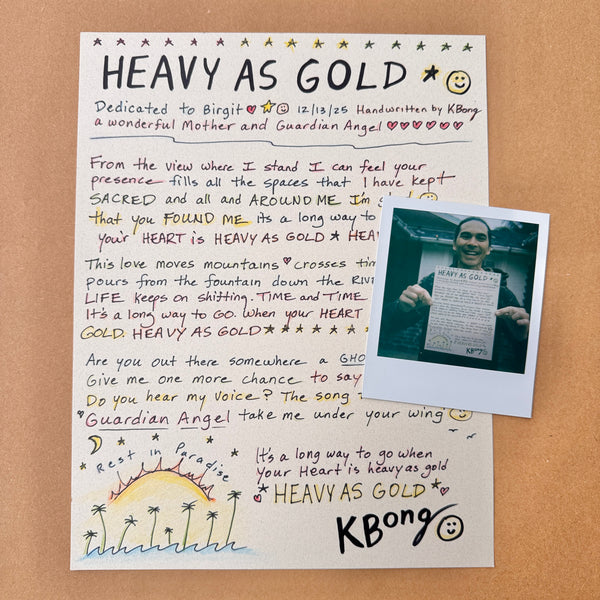 HEAVY AS GOLD
Dedicated to Birgit 12/13/25 Handwritten by KBong
a wonderful Mother and Guardian Angel
From the view where I stand I can feel your
presence fills all the spaces that I have kept
SACRED and all and AROUND ME I'm
that you FOUND ME its a long way to
your HEART is HEAVY AS GOLD
This love moves mountains crosses
pours from the fountain down the
LIFE keeps on shifting. TIME and TIME
It's a long way to GO. when your HEART
GOLD. HEAVY AS GOLD
Are you out there somewhere a
Give me one more chance to say
Do you hear my voice? The song
Guardian Angel take me under your wing
Rest in Paradise
It's a long way to go when
your Heart is heavy as gold
HEAVY AS GOLD
KBong
HEAVY AS GOLD
KBong